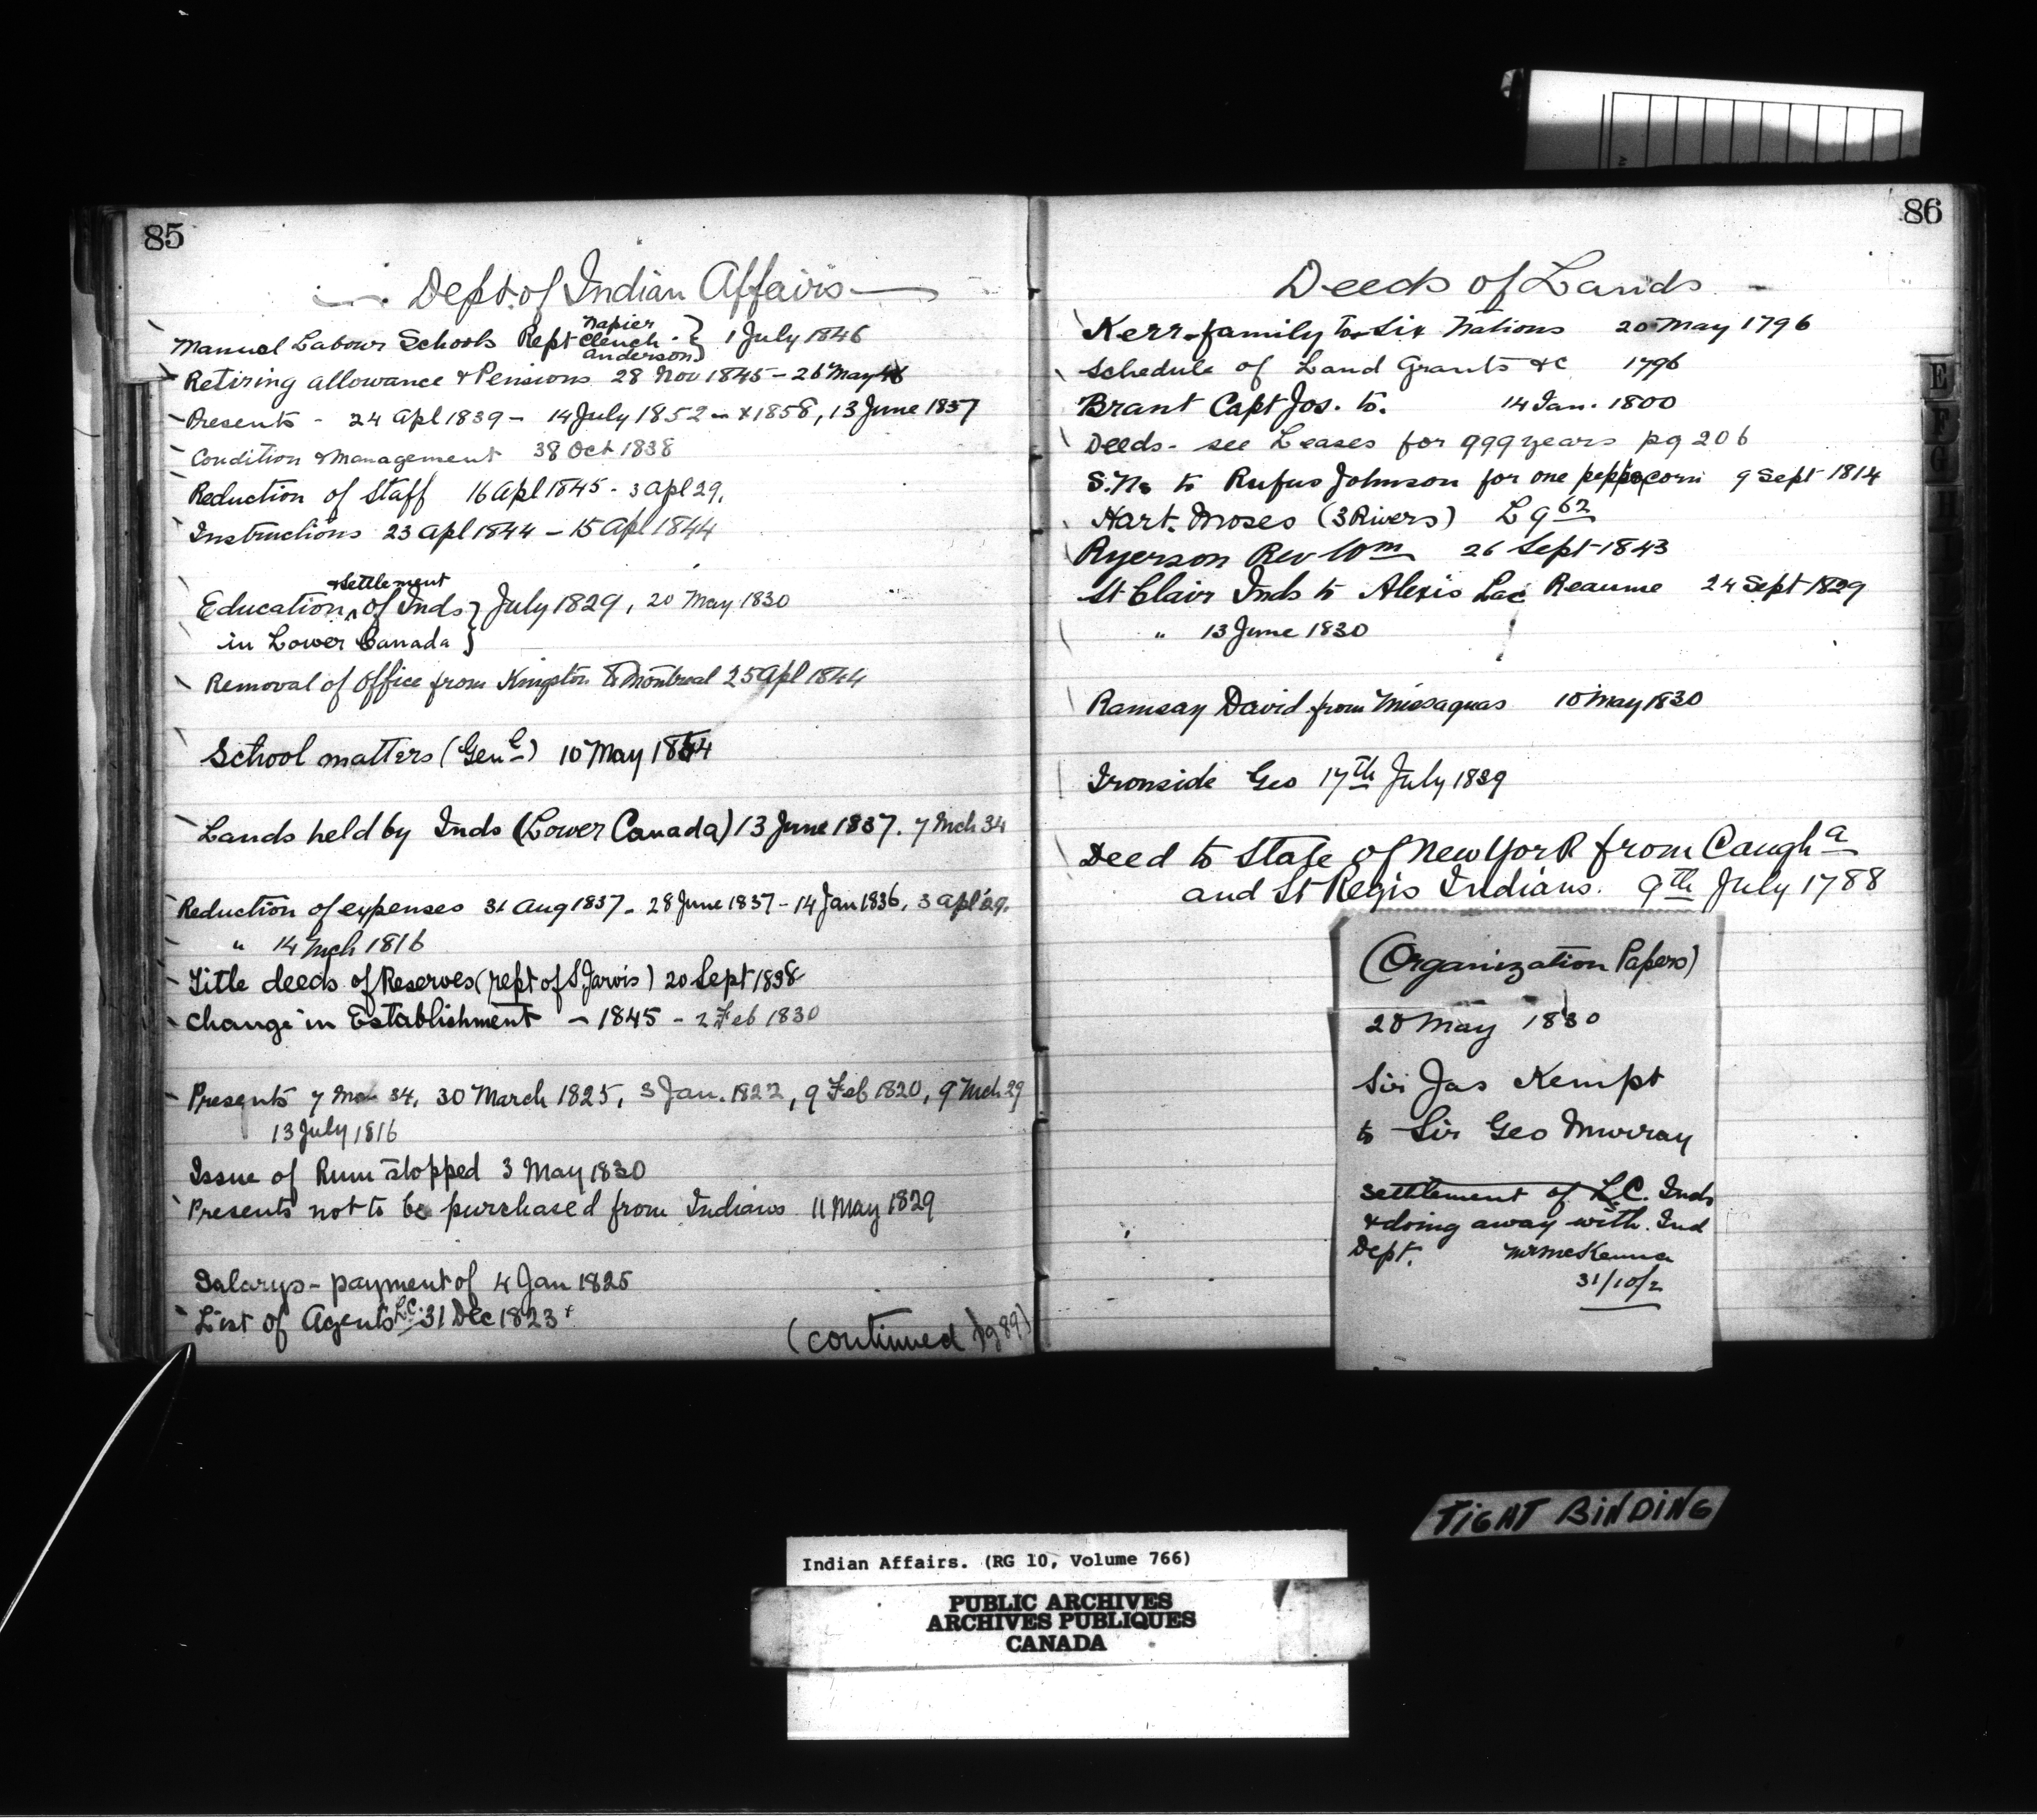 85
Dept. of Indian Affairs
Manual Labour Schools Rept Napier Clench Anderson } 1 July 1846
Retiring allowance & Pensions 28 Nov 1845 - 26 May 46
Presents - 24 Apl 1839 - 14 July 1852 - & 1858, 13 June 1837
Condition & Management 38 Oct 1838
Reduction of Staff 16 Apl 1845 - 3 Apl 29.
Instructions 23 Apl 1844 - 15 Apl 1844
& settlement
Education ^ of Inds } July 1829, 20 May 1830
in Lower Canada }
Removal of Office from Kingston to Montreal 25 Apl 1844
School matters (Genl) 10 May 1844
Lands held by Inds (Lower Canada) 13 June 1837. 7 Mch 34
Reduction of expenses 31 Aug 1837 - 28 June 1837 - 14 Jan 1836, 3 Apl 29.
" 14 Mch 1816
Title deeds of Reserves (rept of S. Jarvis) 20 Sept 1838
Change in Establishment - 1845 - 2 Feb 1830
Presents 7 Mch 34, 30 March 1825, 3 Jan. 1822, 9 Feb 1820, 9 Mch 29
13 July 1816
Issue of Rum stopped 3 May 1830
Presents not to be purchased from Indians 11 May 1829
Salarys - payment of 4 Jan 1825
List of Agents L.C. 31 Dec 1823
(continued pg 89)
86
Deeds of Lands
Kerr family to Six Nations 20 May 1796
Schedule of Land Grants &c 1796
Brant Capt Jos. to. 14 Jan. 1800
Deeds - see Leases for 999 years pg 206
S.Ns to Rufus Johnson for one peppercorn 9 Sept 1814
Hart. Moses (3 Rivers) L 9 62
Ryerson Rev Wm 26 Sept 1843
St Clair Inds to Alexis Reaume 24 Sept 1829
" 13 June 1830
Ramsay David from Missaquas 10 May 1830
Ironside Geo 17th July 1839
Deed to State of New York from Caugha
and St Regis Indians. 9th July 1788
(Organization Papers)
20 May 1830
Sir Jas Kempt
to Sir Geo Murray
settlement of L.C. Inds
& doing away with Ind
Dept. Mr McKenna
31/10/2
E
F
G
H
TIGHT BINDING
Indian Affairs. (RG 10, Volume 766)
PUBLIC ARCHIVES
ARCHIVES PUBLIQUES
CANADA